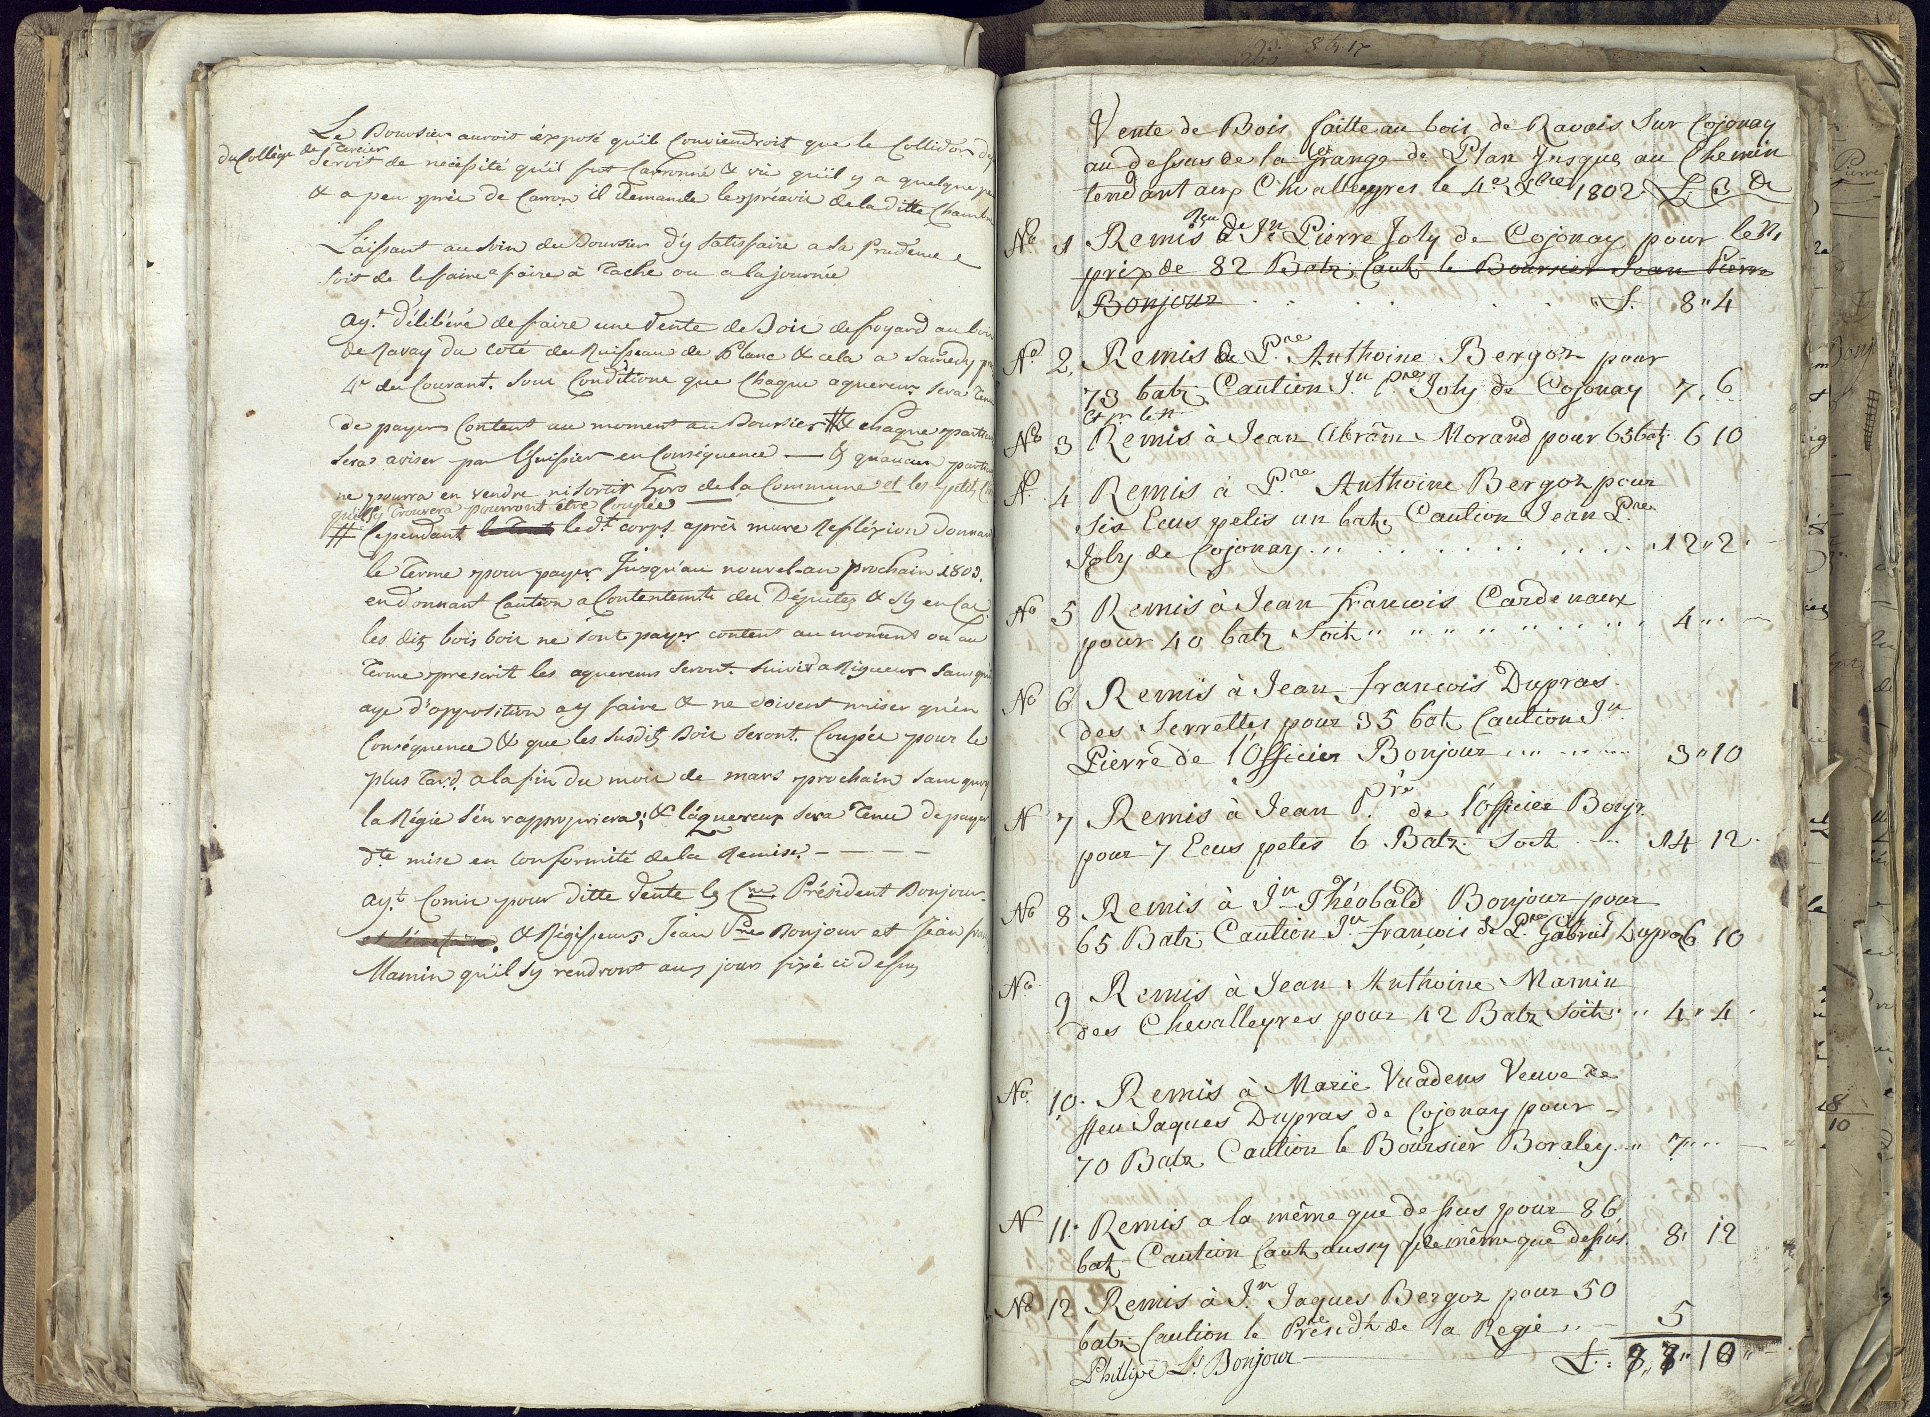 Le Boursier auroit éxposé qu'il Conviendroit que le Collidor
du Collège de Tercier
Seroit de necéssité qu'il fut Carronné & vû qu'il y a quelque
& a peu près de Carron il demande le préavis de la ditte Chambre
Laissant au Soin du Boursier d'y Satisfaire a Sa Prudence
Soit de le faire faire à Tache ou a la journée
Ay.t délibéré de faire une Vente de Bois de foyard au bois
de Ravay du coté du Ruisseau de Planc & cela a Samedy
4e du Courant. Sous Conditions que Chaque aquereur Sera Tenu
de payer Content au moment au Boursier # & chaque
Sera aviser par l'huissier en Conséquence — & qu'aucun
ne pourra en vendre ni Sortir hors de la Commune et les petits
qu'il sy Trouvera pourront être Coupée
# Cependant le Tout led.t corps après mure Refléxion donnant
le Terme pour payer Jusqu'au nouvel-an prochain 1803.
en donnant Caution a Contentemt. des Députez & S'y en Cas
les dits bois ne Sont payer content au moment ou au
Terme prescrit les aquereurs Seront Suivit a Rigueur Sans qu'il
aye d'opposition a y faire & ne doivent miser qu'en
Conséquence & que les Susdits Bois Seront Coupée pour le
plus Tard a la fin du mois de mars prochain Sans quoy
la Régie s'en rappropriera; & l'aquereur Sera Tenu de payer
d.te mise en conformité de la Remise. — — — —
Ay.t Comis pour ditte Vente le C.ne Président Bonjour.
et Secretaire, & Régisseurs Jean P.re Bonjour et Jean
Mamin qu'il Sy rendront aux jours fixé ci dessus
Vente de Bois faitte au bois de Ravais Sur Cojonay
au dessus de la Grange de Plan Jusques au Chemin
tendant aux Chevalleyres le 4e Xbre 1802. L. B
No 1 Remis à Jn Pierre Joly de Cojonay pour le
prix de 82 Batz Caut. le Boursier Jean Pierre
Bonjour . . . . . L. 8 " 4
No 2. Remis à P.re Anthoine Bergoz pour
73 batz Caution Jn P.re Joly de Cojonay 7. 6
No 3 Remis à Jean Abrâm Morand pour 65 batz. 6 10
No. 4 Remis à P.re Anthoine Bergoz pour
Six Ecus petis un batz Caution Jean P.re
Joly de Cojonay . . . . . . . 12 " 2 "
No 5 Remis à Jean françois Cardenaux
pour 40 batz Soit " " " " " " 4 " " —
No 6 Remis à Jean françois Dupras
des Serrettes pour 35 batz Caution Jn.
Pierre de l'Officier Bonjour . . . 3 " 10
N 7 Remis à Jean P.re de l'officier Bonjr.
pour 7 Ecus petes 6 Batz. Soit . . . 14 12.
No 8 Remis à Jn Théobald Bonjour pour
65 Batz Caution Jn françois de P.re Gabriel Dupras 6 10
No. 9 Remis à Jean Anthoine Mamin
des Chevalleyres pour 42 Batz Soit " " 4 " 4 "
No. 10. Remis à Marie Vuadens Veuve de
ffeu Jaques Dupras de Cojonay pour —
70 Batz Caution le Boursier Boraley . . " 7 " " —
N 11. Remis a la même que dessus pour 86
batz Caution Caut. aussy le même que dessus 8 " 12
No 12 Remis à Jn Jaques Bergoz pour 50
batz Caution le Présidt de la Regie . . — 5
Phillipe Ls Bonjour — L. : 87 " 10 "